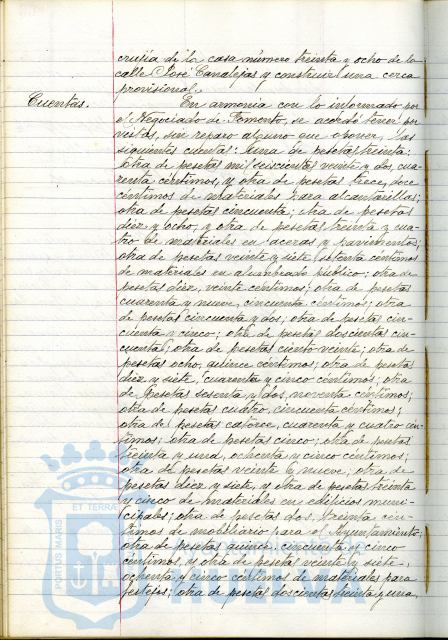 crujía de la casa número treinta y ocho de la
calle José Canalejas y construir una cerca
provisional.
Cuentas.
En armonía con lo informado por
el Negociado de Fomento, se acordó tener por
vistas, sin reparo alguno que oponer, las
siguientes cuentas: Una de pesetas treinta;
otra de pesetas mil seiscientas veinte y dos, cua-
renta céntimos, y otra de pesetas trece, doce
céntimos de materiales para alcantarillas;
otra de pesetas cincuenta; otra de pesetas
diez y ocho, y otra de pesetas treinta y cua-
tro de materiales en aceras y pavimentos;
otra de pesetas veinte y siete, setenta céntimos
de materiales en alumbrado público; otra de
pesetas diez, veinte céntimos; otra de pesetas
cuarenta y nueve, cincuenta céntimos; otra
de pesetas cincuenta y dos; otra de pesetas cin-
cuenta y cinco; otra de pesetas doscientas cin-
cuenta; otra de pesetas ciento veinte; otra de
pesetas ocho, quince céntimos; otra de pesetas
diez y siete, cuarenta y cinco céntimos; otra
de pesetas sesenta y dos, noventa céntimos;
otra de pesetas cuatro, cincuenta céntimos;
otra de pesetas catorce, cuarenta y cuatro cén-
timos; otra de pesetas cinco; otra de pesetas
treinta y una, ochenta y cinco céntimos;
otra de pesetas veinte y nueve; otra de
pesetas diez y siete, y otra de pesetas treinta
y cinco de materiales en edificios muni-
cipales; otra de pesetas dos, treinta cén-
timos de mobiliario para el Ayuntamiento;
otra de pesetas quince, cincuenta y cinco
céntimos, y otra de pesetas veinte y siete,
ochenta y cinco céntimos de materiales para
festejos; otra de pesetas doscientas treinta y una,
PORTUS MARIS
ET TERRAE
HUELVA